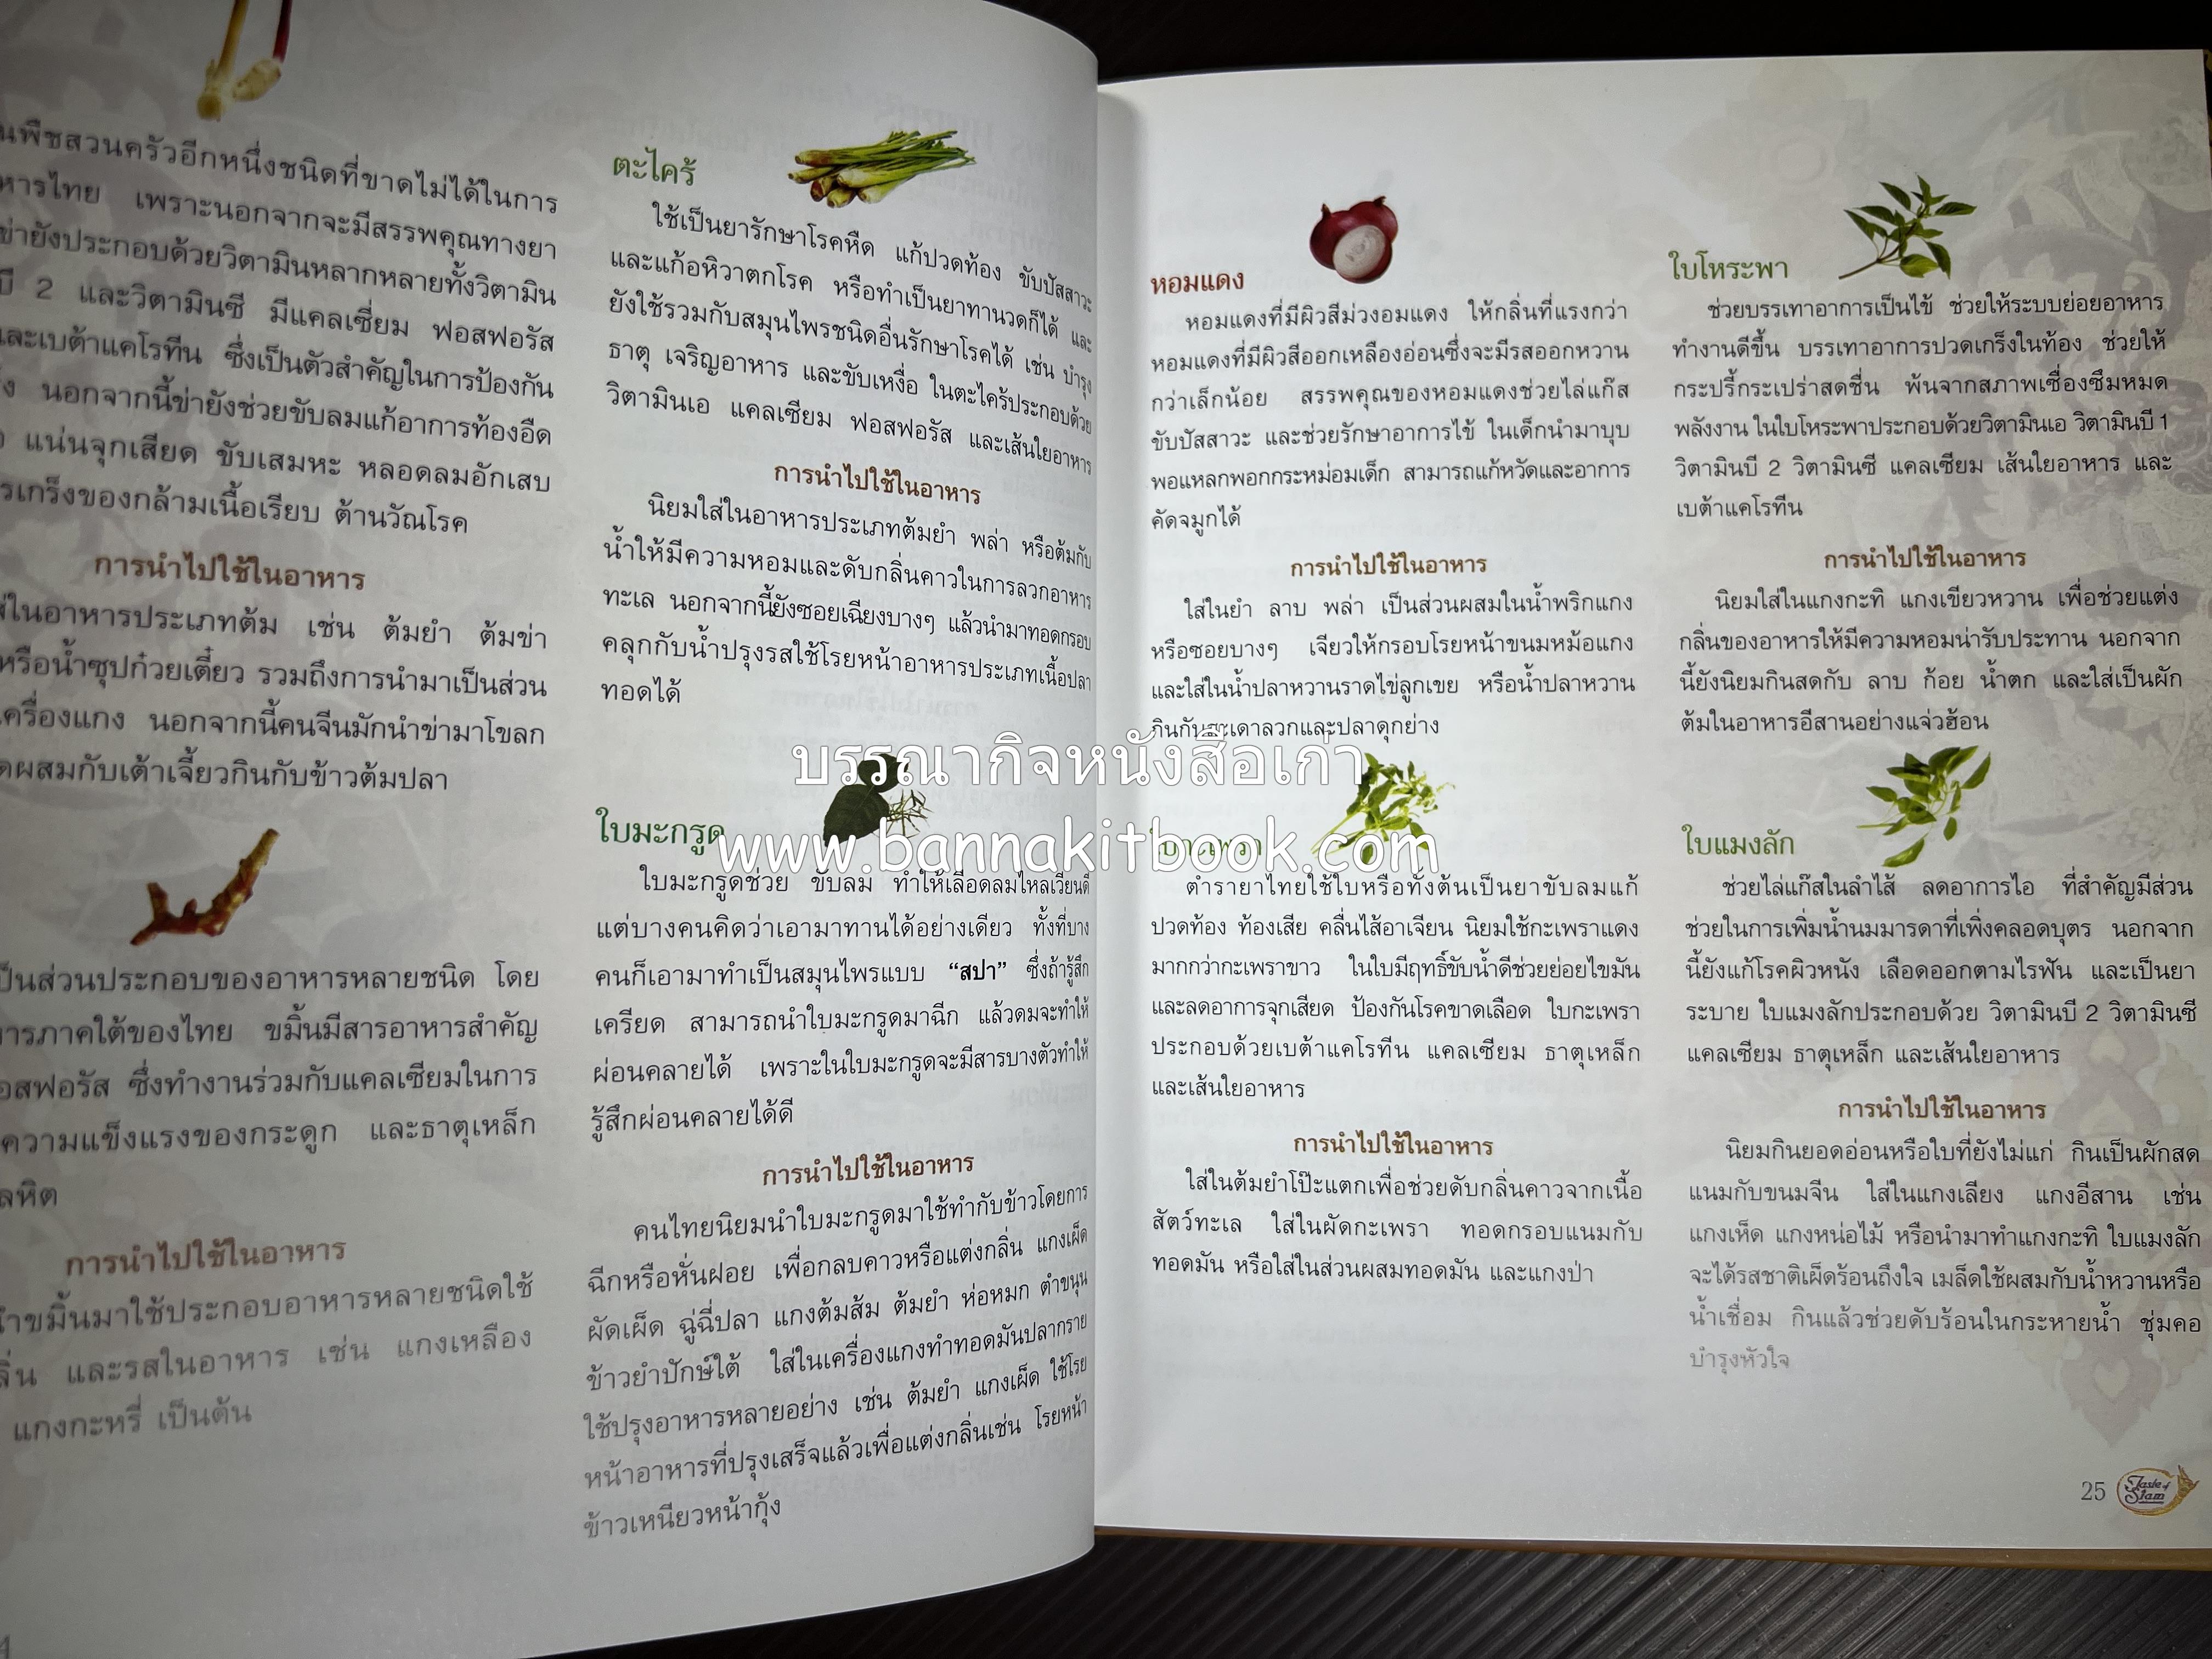 นพืชสวนครัวอีกหนึ่งชนิดที่ขาดไม่ได้ในการ
หารไทย เพราะนอกจากจะมีสรรพคุณทางยา
ข่ายังประกอบด้วยวิตามินหลากหลายทั้งวิตามิน
บี 2 และวิตามินซี มีแคลเซี่ยม ฟอสฟอรัส
และเบต้าแคโรทีน ซึ่งเป็นตัวสำคัญในการป้องกัน
นอกจากนี้ข่ายังช่วยขับลมแก้อาการท้องอืด
แน่นจุกเสียด ขับเสมหะ หลอดลมอักเสบ
รเกร็งของกล้ามเนื้อเรียบ ต้านวัณโรค
การนำไปใช้ในอาหาร
ส่ในอาหารประเภทต้ม เช่น ต้มยำ ต้มข่า
หรือน้ำซุปก๋วยเตี๋ยว รวมถึงการนำมาเป็นส่วน
เครื่องแกง นอกจากนี้คนจีนมักนำข่ามาโขลก
ดผสมกับเต้าเจี้ยวกินกับข้าวต้มปลา
ป็นส่วนประกอบของอาหารหลายชนิด โดย
ารภาคใต้ของไทย ขมิ้นมีสารอาหารสำคัญ
อสฟอรัส ซึ่งทำงานร่วมกับแคลเซียมในการ
ความแข็งแรงของกระดูก และธาตุเหล็ก
ลหิต
การนำไปใช้ในอาหาร
นำขมิ้นมาใช้ประกอบอาหารหลายชนิดใช้
ลิ่น และรสในอาหาร เช่น แกงเหลือง
แกงกะหรี่ เป็นต้น
ตะไคร้
ใช้เป็นยารักษาโรคหืด แก้ปวดท้อง ขับปัสสาวะ
และแก้อหิวาตกโรค หรือทำเป็นยาทานวดก็ได้ และ
ยังใช้รวมกับสมุนไพรชนิดอื่นรักษาโรคได้ เช่น บำรุง
ธาตุ เจริญอาหาร และขับเหงื่อ ในตะไคร้ประกอบด้วย
วิตามินเอ แคลเซียม ฟอสฟอรัส และเส้นใยอาหาร
การนำไปใช้ในอาหาร
นิยมใส่ในอาหารประเภทต้มยำ พล่า หรือต้มกับ
น้ำให้มีความหอมและดับกลิ่นคาวในการลวกอาหาร
ทะเล นอกจากนี้ยังซอยเฉียงบางๆ แล้วนำมาทอดกรอบ
คลุกกับน้ำปรุงรสใช้โรยหน้าอาหารประเภทเนื้อปลา
ทอดได้
ใบมะกรูด
ใบมะกรูดช่วย ขับลม ทำให้เลือดลมไหลเวียนดี
แต่บางคนคิดว่าเอามาทานได้อย่างเดียว ทั้งที่บาง
คนก็เอามาทำเป็นสมุนไพรแบบ “สปา” ซึ่งถ้ารู้สึก
เครียด สามารถนำใบมะกรูดมาฉีก แล้วดมจะทำให้
ผ่อนคลายได้ เพราะในใบมะกรูดจะมีสารบางตัวทำให้
รู้สึกผ่อนคลายได้ดี
การนำไปใช้ในอาหาร
คนไทยนิยมนำใบมะกรูดมาใช้ทำกับข้าวโดยการ
ฉีกหรือหั่นฝอย เพื่อกลบคาวหรือแต่งกลิ่น แกงเผ็ด
ผัดเผ็ด ฉู่ฉี่ปลา แกงต้มส้ม ต้มยำ ห่อหมก ตำขนุน
ข้าวยำปักษ์ใต้ ใส่ในเครื่องแกงทำทอดมันปลากราย
ใช้ปรุงอาหารหลายอย่าง เช่น ต้มยำ แกงเผ็ด ใช้โรย
หน้าอาหารที่ปรุงเสร็จแล้วเพื่อแต่งกลิ่นเช่น โรยหน้า
ข้าวเหนียวหน้ากุ้ง
บรรณากิจหนังสือเก่า
www.bannakitbook.com
หอมแดง
หอมแดงที่มีผิวสีม่วงอมแดง ให้กลิ่นที่แรงกว่า
หอมแดงที่มีผิวสีออกเหลืองอ่อนซึ่งจะมีรสออกหวาน
กว่าเล็กน้อย สรรพคุณของหอมแดงช่วยไล่แก๊ส
ขับปัสสาวะ และช่วยรักษาอาการไข้ ในเด็กนำมาบุบ
พอแหลกพอกกระหม่อมเด็ก สามารถแก้หวัดและอาการ
คัดจมูกได้
การนำไปใช้ในอาหาร
ใส่ในยำ ลาบ พล่า เป็นส่วนผสมในน้ำพริกแกง
หรือซอยบางๆ เจียวให้กรอบโรยหน้าขนมหม้อแกง
และใส่ในน้ำปลาหวานราดไข่ลูกเขย หรือน้ำปลาหวาน
กินกับสะเดาลวกและปลาดุกย่าง
ใบกะเพรา
ตำรายาไทยใช้ใบหรือทั้งต้นเป็นยาขับลมแก้
ปวดท้อง ท้องเสีย คลื่นไส้อาเจียน นิยมใช้กะเพราแดง
มากกว่ากะเพราขาว ในใบมีฤทธิ์ขับน้ำดีช่วยย่อยไขมัน
และลดอาการจุกเสียด ป้องกันโรคขาดเลือด ใบกะเพรา
ประกอบด้วยเบต้าแคโรทีน แคลเซียม ธาตุเหล็ก
และเส้นใยอาหาร
การนำไปใช้ในอาหาร
ใส่ในต้มยำโป๊ะแตกเพื่อช่วยดับกลิ่นคาวจากเนื้อ
สัตว์ทะเล ใส่ในผัดกะเพรา ทอดกรอบแนมกับ
ทอดมัน หรือใส่ในส่วนผสมทอดมัน และแกงป่า
ใบโหระพา
ช่วยบรรเทาอาการเป็นไข้ ช่วยให้ระบบย่อยอาหาร
ทำงานดีขึ้น บรรเทาอาการปวดเกร็งในท้อง ช่วยให้
กระปรี้กระเปร่าสดชื่น พ้นจากสภาพเซื่องซึมหมด
พลังงาน ในใบโหระพาประกอบด้วยวิตามินเอ วิตามินบี 1
วิตามินบี 2 วิตามินซี แคลเซียม เส้นใยอาหาร และ
เบต้าแคโรทีน
การนำไปใช้ในอาหาร
นิยมใส่ในแกงกะทิ แกงเขียวหวาน เพื่อช่วยแต่ง
กลิ่นของอาหารให้มีความหอมน่ารับประทาน นอกจาก
นี้ยังนิยมกินสดกับ ลาบ ก้อย น้ำตก และใส่เป็นผัก
ต้มในอาหารอีสานอย่างแจ่วฮ้อน
ใบแมงลัก
ช่วยไล่แก๊สในลำไส้ ลดอาการไอ ที่สำคัญมีส่วน
ช่วยในการเพิ่มน้ำนมมารดาที่เพิ่งคลอดบุตร นอกจาก
นี้ยังแก้โรคผิวหนัง เลือดออกตามไรฟัน และเป็นยา
ระบาย ใบแมงลักประกอบด้วย วิตามินบี 2 วิตามินซี
แคลเซียม ธาตุเหล็ก และเส้นใยอาหาร
การนำไปใช้ในอาหาร
นิยมกินยอดอ่อนหรือใบที่ยังไม่แก่ กินเป็นผักสด
แนมกับขนมจีน ใส่ในแกงเลียง แกงอีสาน เช่น
แกงเห็ด แกงหน่อไม้ หรือนำมาทำแกงกะทิ ใบแมงลัก
จะได้รสชาติเผ็ดร้อนถึงใจ เมล็ดใช้ผสมกับน้ำหวานหรือ
น้ำเชื่อม กินแล้วช่วยดับร้อนในกระหายน้ำ ชุ่มคอ
บำรุงหัวใจ
25
Taste of
Siam